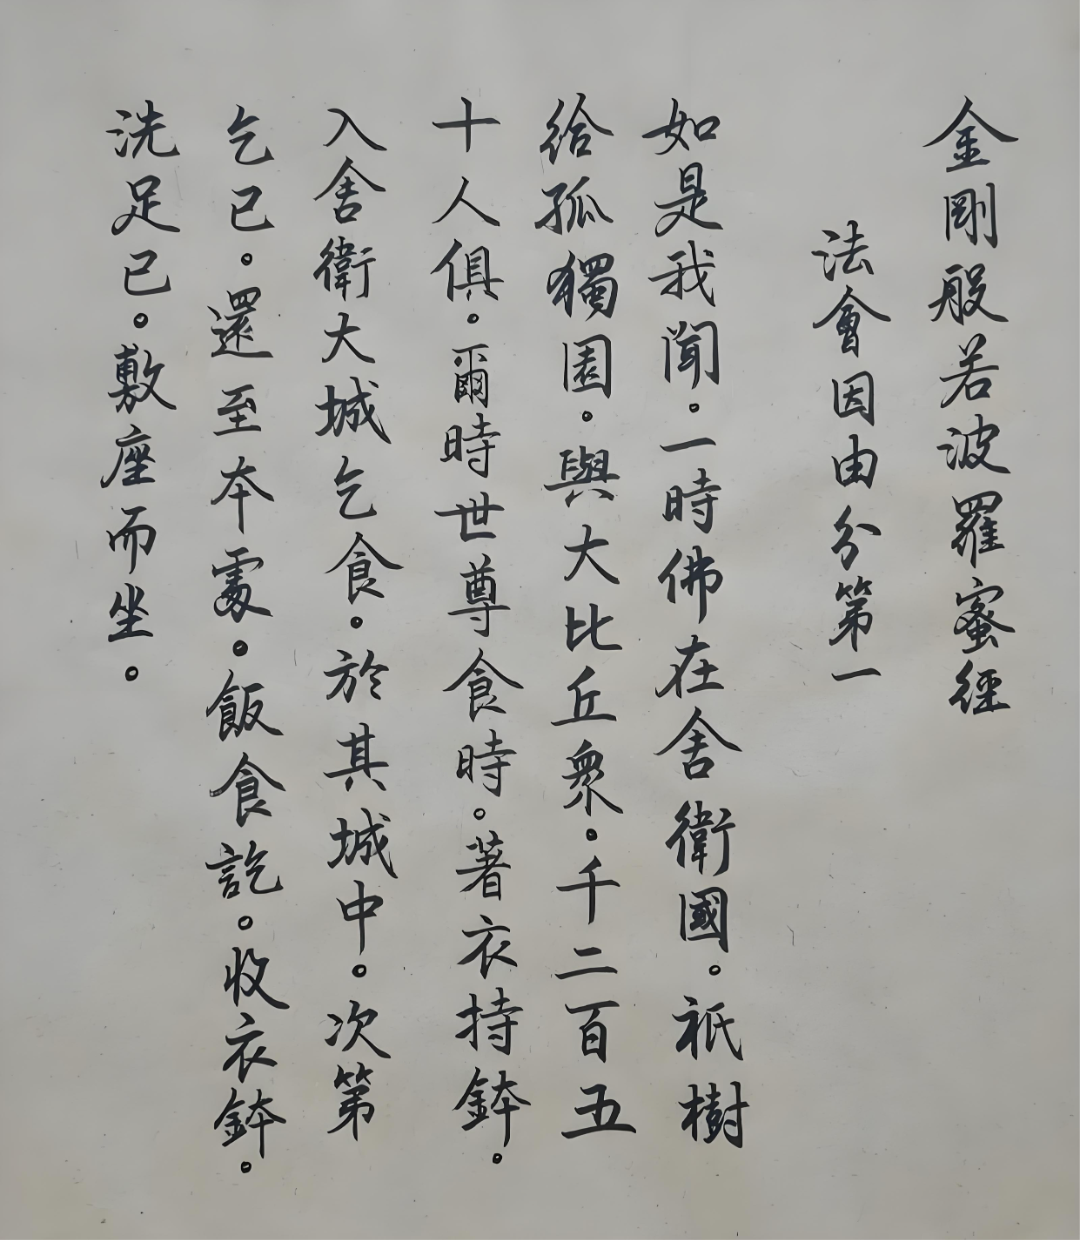 金剛般若波羅蜜經
法會因由分第一
如是我聞。一時佛在舍衛國。祇樹
給孤獨園。與大比丘衆。千二百五
十人俱。爾時世尊食時。著衣持鉢。
入舍衛大城乞食。於其城中。次第
乞已。還至本處。飯食訖。收衣鉢。
洗足已。敷座而坐。